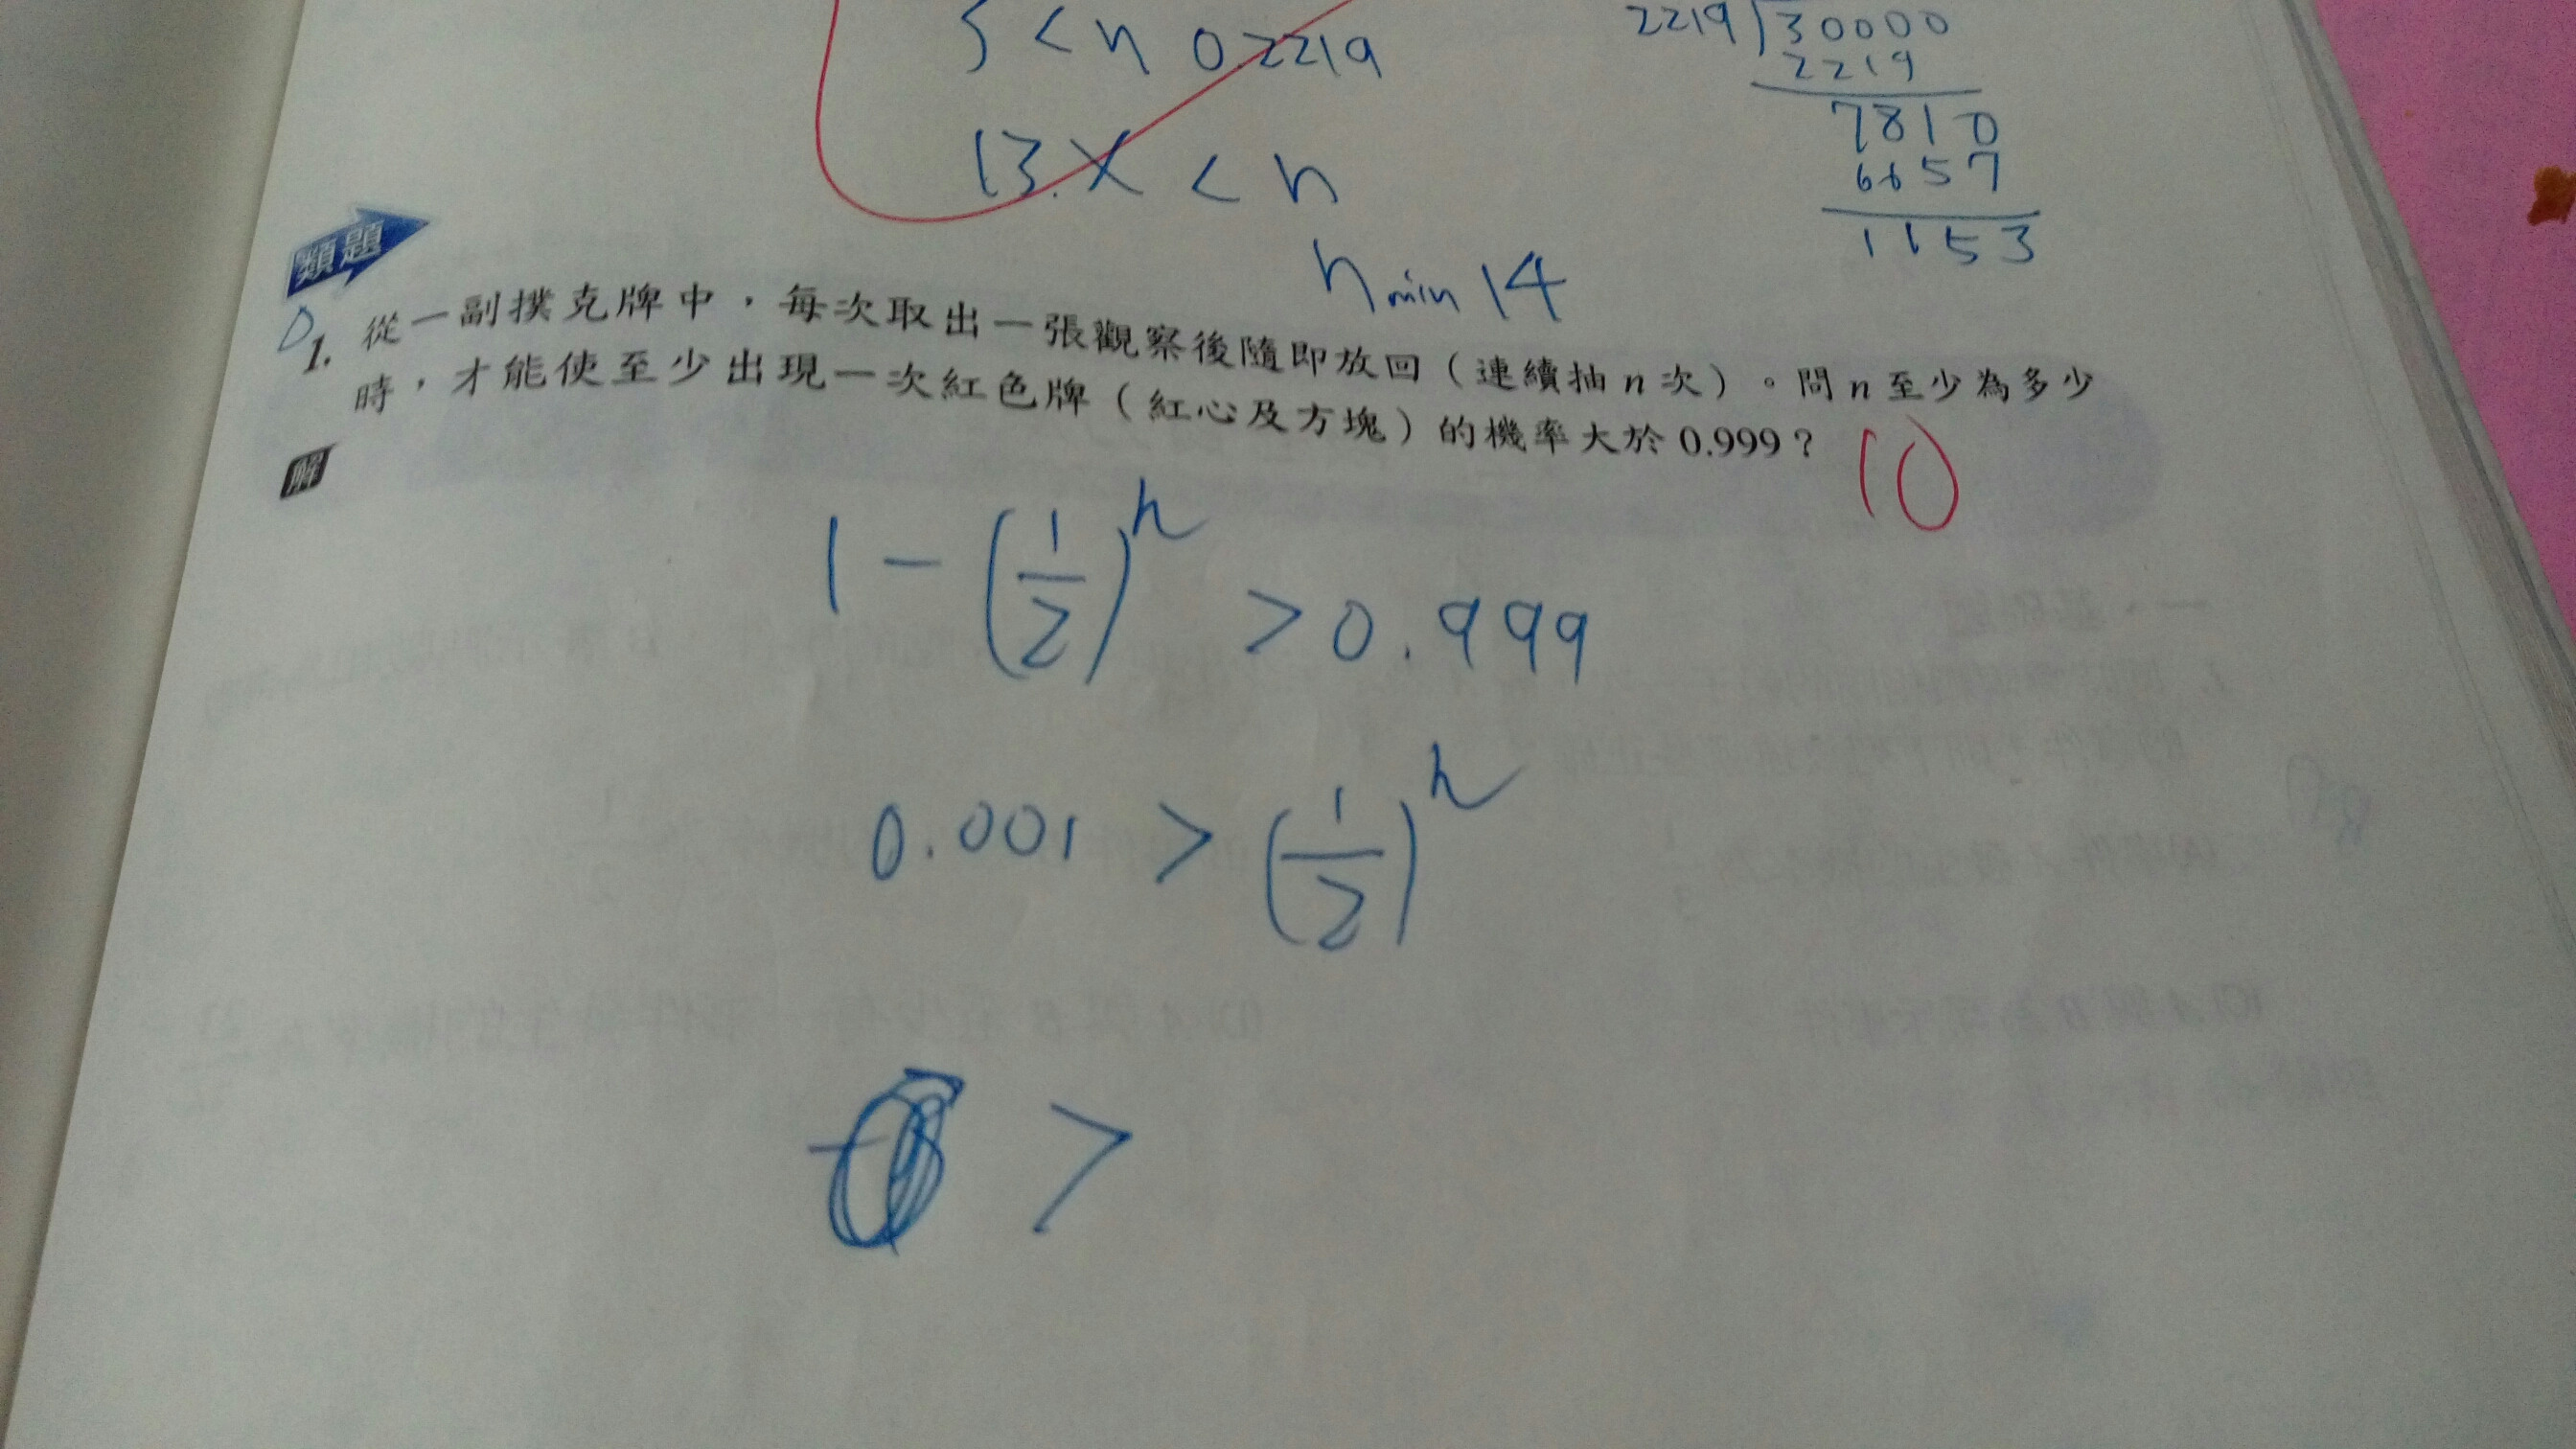 3 < n 0.2219
13.X < n
n min 14
2219 ) 30000
2219
7810
6657
1153
類題
1. 從一副撲克牌中，每次取出一張觀察後隨即放回（連續抽 n 次）。問 n 至少為多少
時，才能使至少出現一次紅色牌（紅心及方塊）的機率大於 0.999？
10
解
1 - (1/2)^n > 0.999
0.001 > (1/2)^n
>